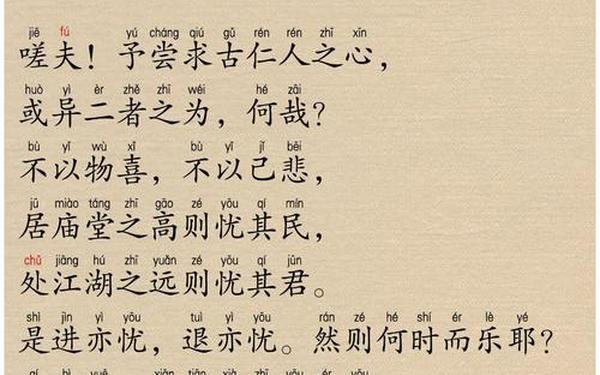 jiē fú yú cháng qiú gǔ rén rén zhī xīn
嗟夫！予尝求古仁人之心，
huò yì èr zhě zhī wéi hé zāi
或异二者之为，何哉？
bù yǐ wù xǐ bù yǐ jǐ bēi
不以物喜，不以己悲，
jū miào táng zhī gāo zé yōu qí mín
居庙堂之高则忧其民，
chǔ jiāng hú zhī yuǎn zé yōu qí jūn
处江湖之远则忧其君。
shì jìn yì yōu tuì yì yōu rán zé hé shí ér lè yé
是进亦忧，退亦忧。然则何时而乐耶？